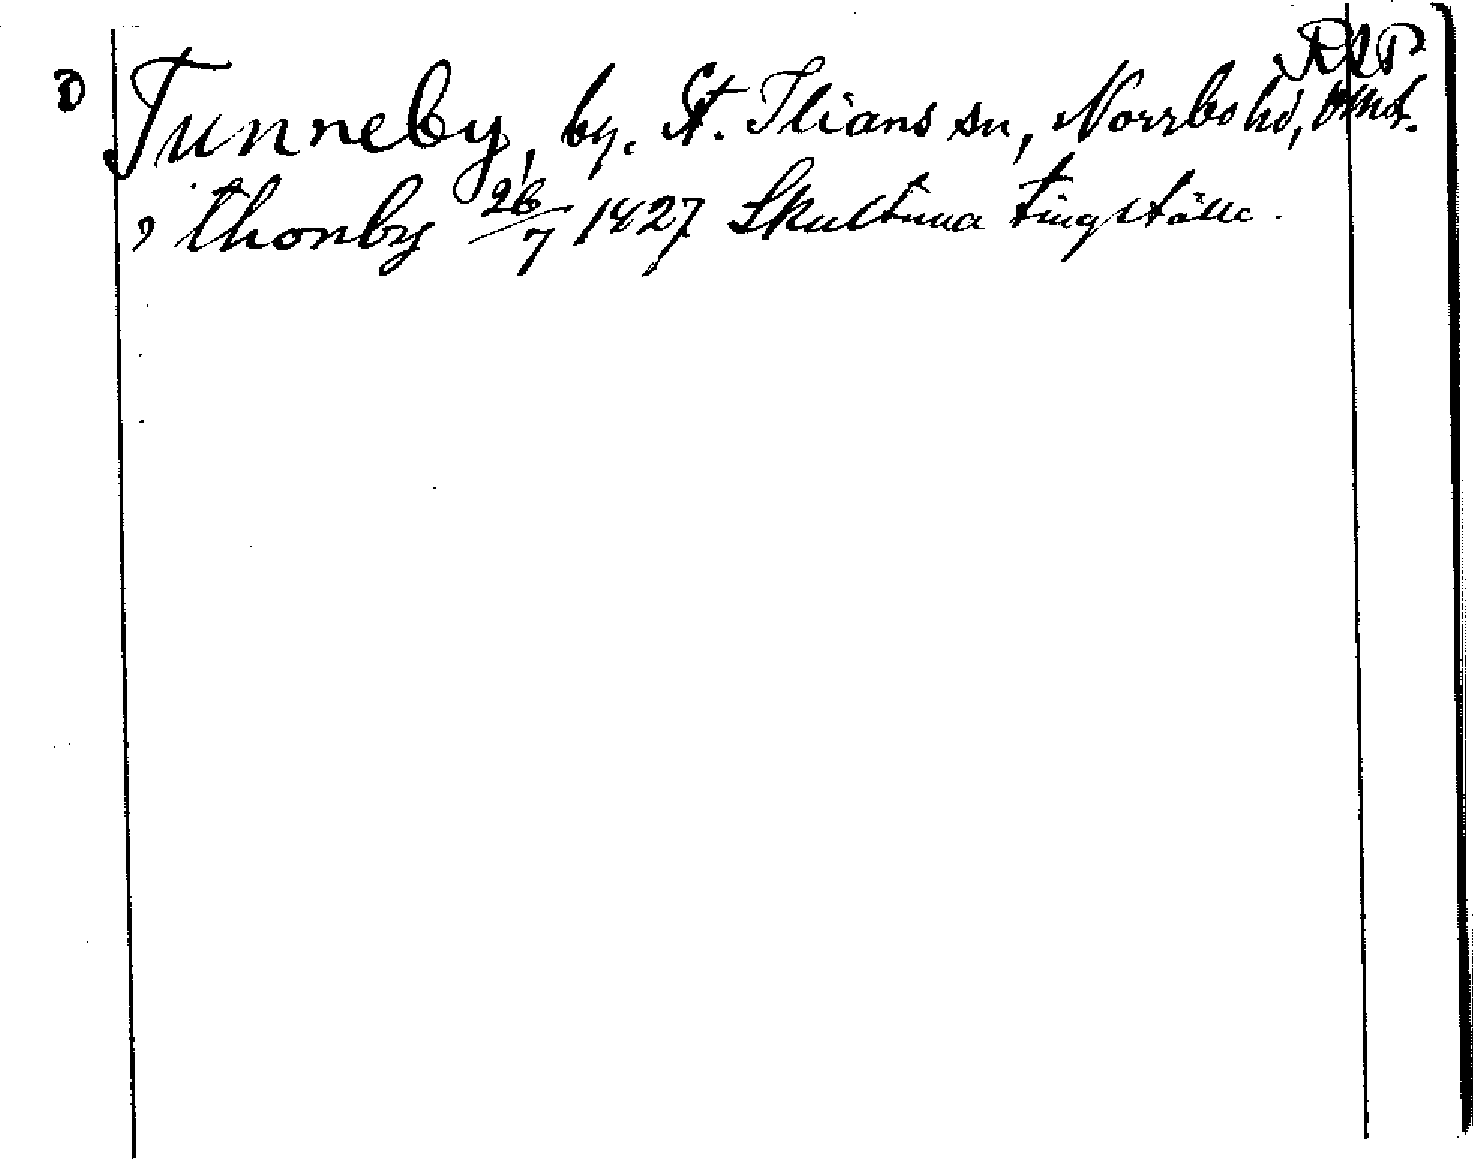 RAP
D Tunneby, by. St. Ilians sn, Norrbo hd, Vmd.
, thonby 26/7 1427 Skultuna tingställe.